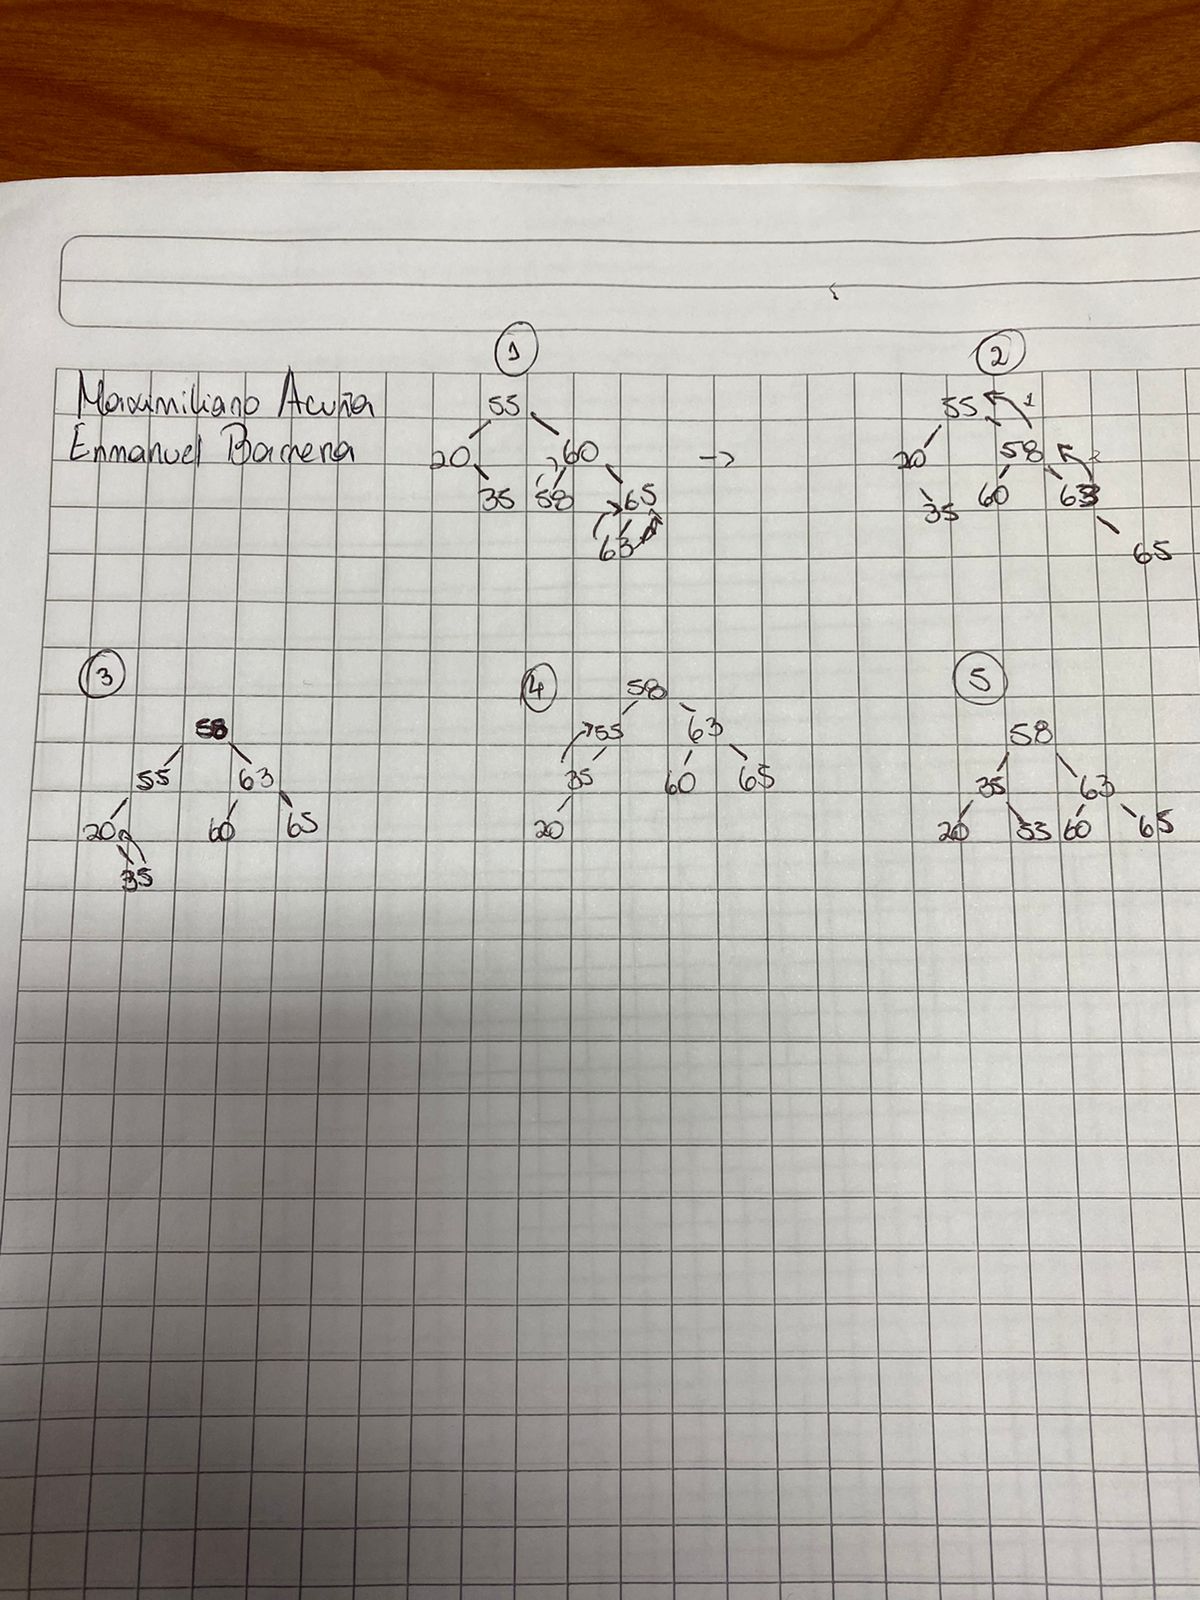 1
2
Maximiliano Acuña
Enmanuel Barrera
55
20 60
35 58 65
63
→
55 1
20 58 2
35 60 63
65
3
58
55 63
20 60 65
35
4
58
55 63
35 60 65
20
5
58
35 63
20 55 60 65